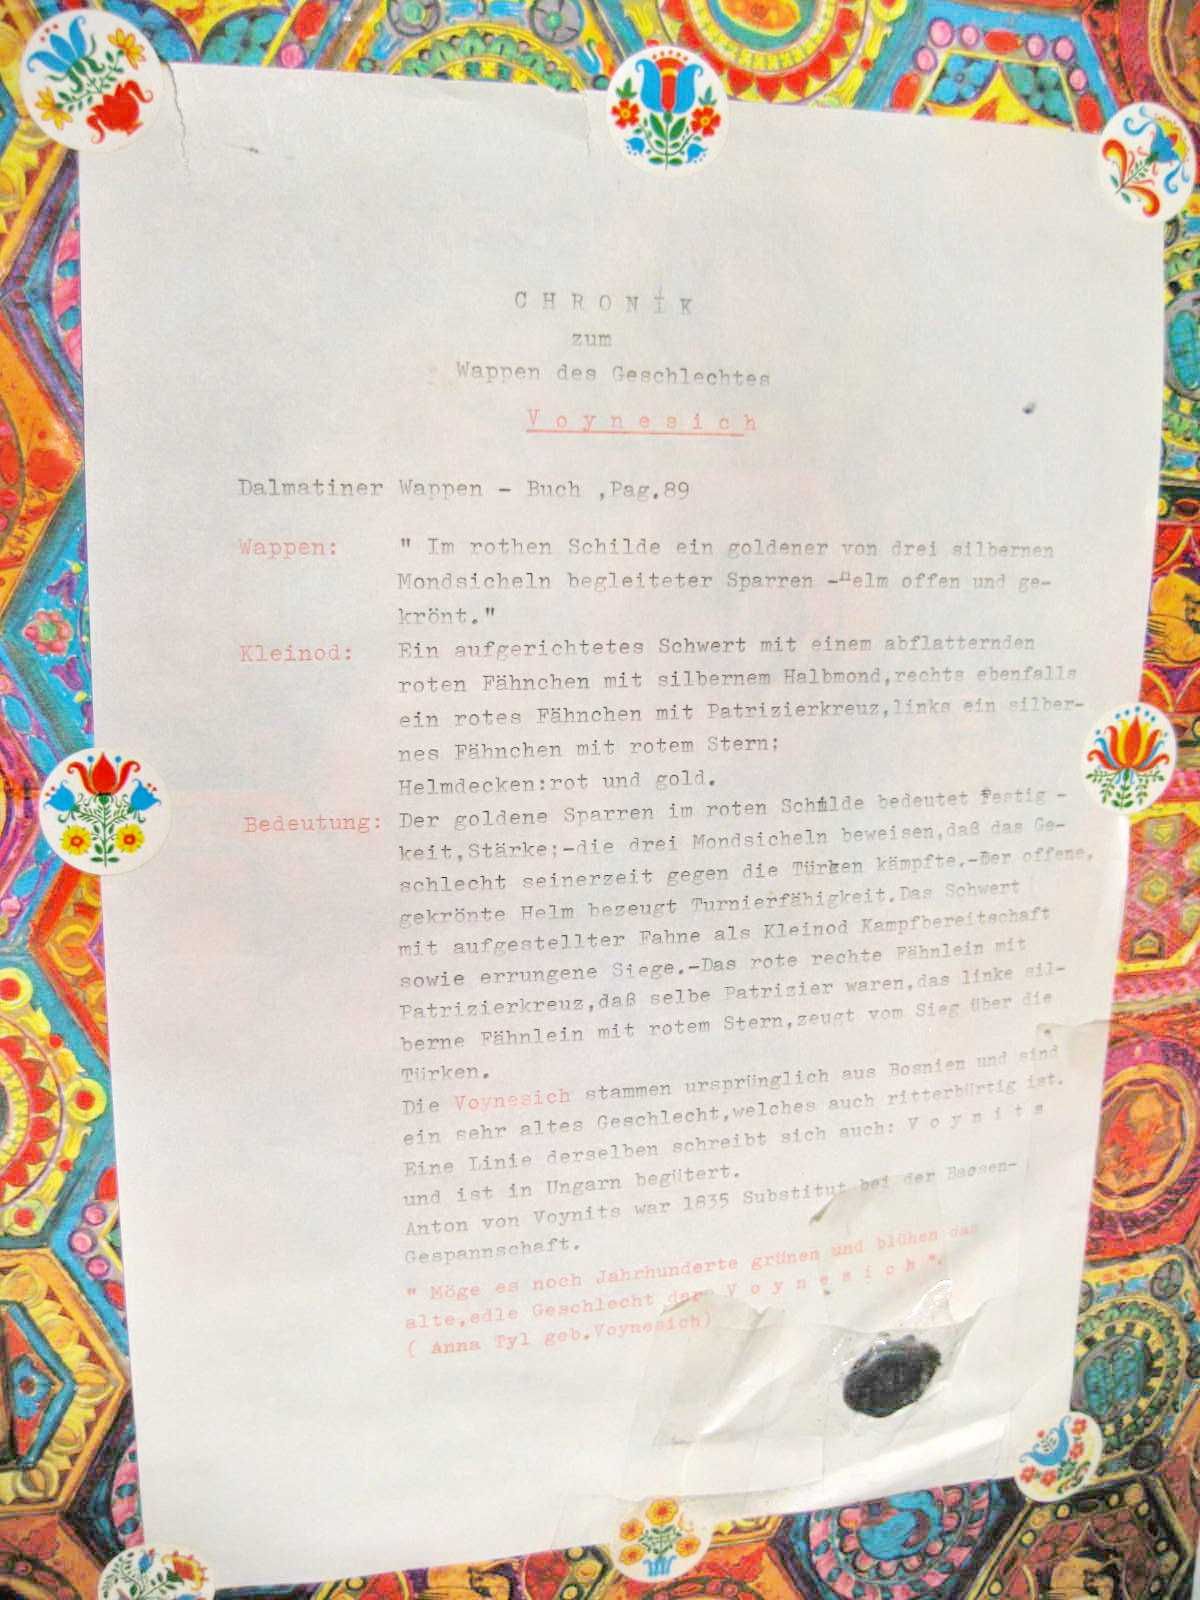 C H R O N i K
zum
Wappen des Geschlechtes
V o y n e s i c h
Dalmatiner Wappen - Buch ,Pag.89
Wappen: " Im rothen Schilde ein goldener von drei silbernen
Mondsicheln begleiteter Sparren -Helm offen und ge-
krönt."
Kleinod: Ein aufgerichtetes Schwert mit einem abflatternden
roten Fähnchen mit silbernem Halbmond,rechts ebenfalls
ein rotes Fähnchen mit Patrizierkreuz,links ein silber-
nes Fähnchen mit rotem Stern;
Helmdecken:rot und gold.
Bedeutung: Der goldene Sparren im roten Schilde bedeutet Festig -
keit,Stärke;-die drei Mondsicheln beweisen,daß das Ge-
schlecht seinerzeit gegen die Türken kämpfte.-Der offene,
gekrönte Helm bezeugt Turnierfähigkeit.Das Schwert
mit aufgestellter Fahne als Kleinod Kampfbereitschaft
sowie errungene Siege.-Das rote rechte Fähnlein mit
Patrizierkreuz,daß selbe Patrizier waren,das linke sil-
berne Fähnlein mit rotem Stern,zeugt vom Sieg über die
Türken.
Die Voynesich stammen ursprünglich aus Bosnien und sind
ein sehr altes Geschlecht,welches auch ritterbürtig ist.
Eine Linie derselben schreibt sich auch: V o y n i t s
und ist in Ungarn begütert.
Anton von Voynits war 1835 Substitut bei der Bacsen-
Gespannschaft.
" Möge es noch Jahrhunderte grünen und blühen das
alte,edle Geschlecht der V o y n e s i c h ".
( Anna Tyl geb.Voynesich)